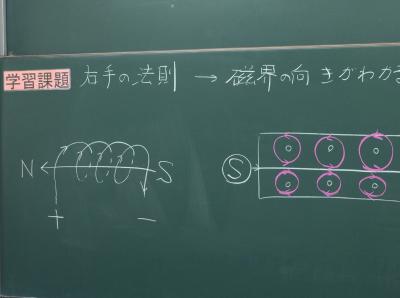 学習課題 右手の法則 → 磁界の向きがわかる
N S
+ −
S